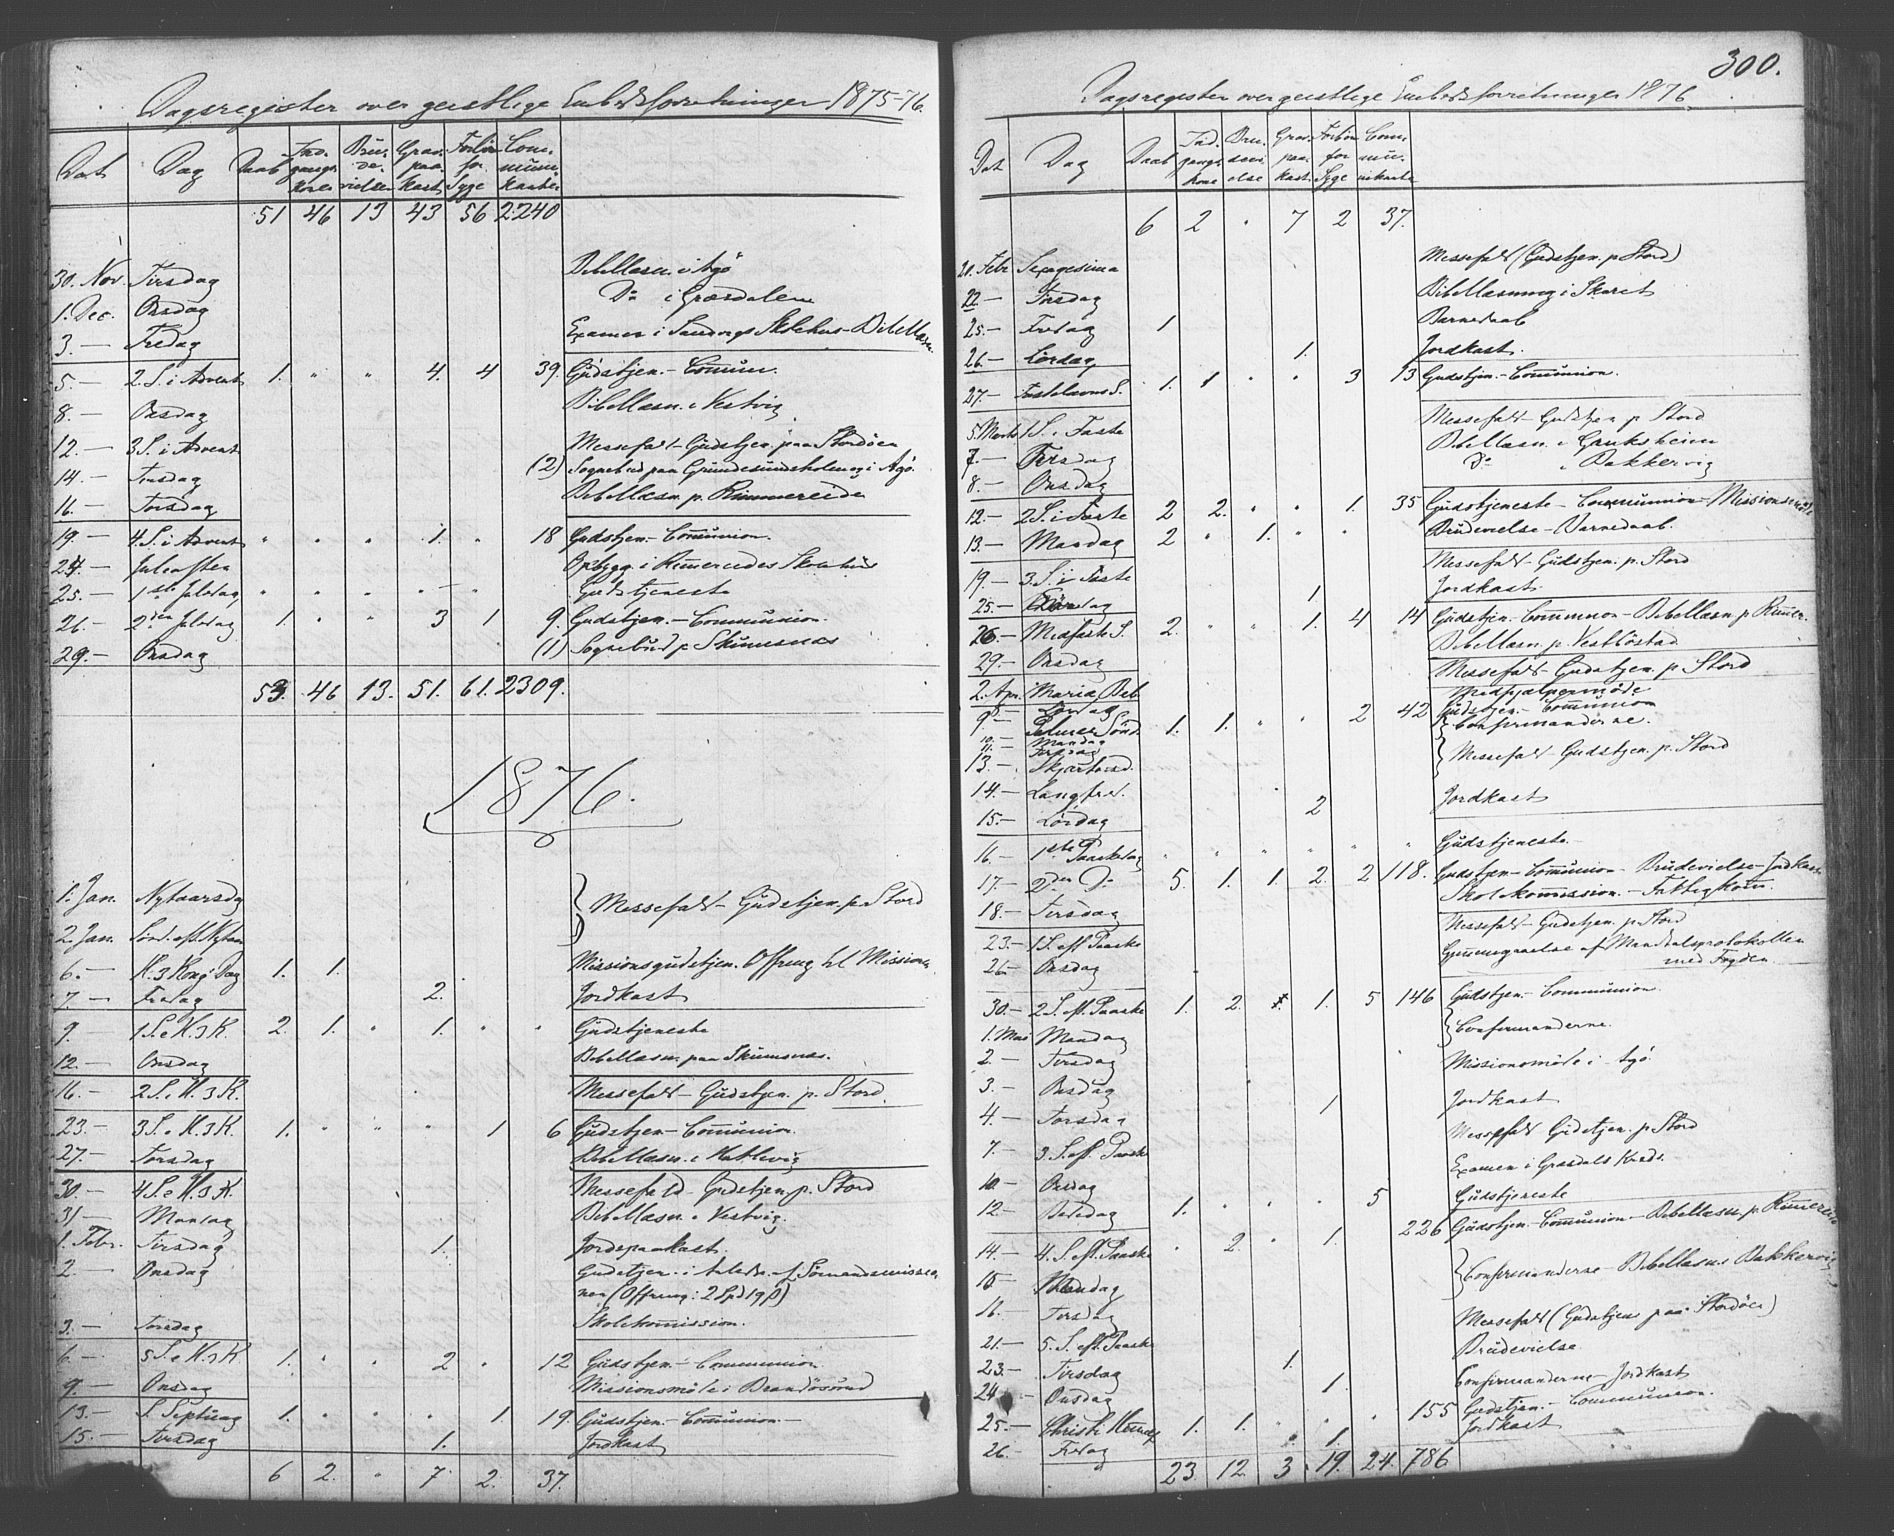 Dagsregister over geistlige Embedsforretninger 1875-76.
Dat Dag Daab Ind-gangs-koner Brü-de-vielser Grav-paa-kast Forbön for Syge Com-mün-kanter
51 46 13 43 56 2240
30. Nov. Tirsdag Bibellæsn. i Agö
1. Dec. Onsdag Do i Græsdalen
3. — Fredag Examen i Skolehus - Bibellæsn.
5. — 2. S. i Advent 1. " " 4. 4 39. Gudstjen. - Commun.
8. — Onsdag Bibellæsn. i Vestvig
12. — 3 S. i Advent Messefald - Gudstjen. paa Stordöen
14. — Tirsdag (2) Sognebud paa Grundesundsholmen og i Agö.
16. — Torsdag Bibellæsn. p. Rimmereide
19. — 4. S. i Advent " " " 1. " 18 Gudstjen. - Communion.
24. — Juleaften Opbygg. i Rimereides Skolehus
25. — 1ste Juledag " " " — " Gudstjeneste
26. — 2den Juledag 1. " " 3 1 9. Gudstjen. - Communion.
29. — Onsdag (1) Sognebud p. Skumsnæs
53. 46 13. 51. 61. 2309.
1876.
1. Jan. Nytaarsdg } Messefald - Gudstjen. p. Stord
2. Jan. Sönd. eft. Nytaar
6. — H. 3 Kong. Dag 1. 1. Missionsgudstjen. Offring til Missionen
7. — Fredag 2. Jordkast
9. — 1 S. e. H. 3 K. 2. 1. " 1. " " Gudstjeneste
12. — Onsdag Bibellæsn. paa Skumsnæs.
16. — 2 S. e. H. 3 K. Messefald - Gudstjen. p. Stord.
23. — 3 S. e. H. 3 K. 1. " " " 1 6 Gudstjen - Communion.
27. — Torsdag Bibellæsn. i
30. — 4 S. e. H. 3 K. Messefald - Gudstjen p. Stord
31 — Mandag Bibellæsn. i Vestvig.
1. Febr. Tirsdag 1. Jordspaakast.
2. — Onsdag Gudstjen. i Anledn. af Sömandsmissio-
nen (Offring: 2 Spd 19 β)
3. — Torsdag Skolekommission.
6. — 5 S. e. H. 3 K. 1. " " 2 " 12 Gudstjen - Communion
9. — Onsdag Missionsmöte i Brandösund
13. — S. Septuag 1. " " " 1. 19. Gudstjen - Communion.
15. — Tirsdag 1. Jordkast
6 2. " 7. 2. 37.
300.
Dagsregister over geistlige Embedsforretninger 1876
Dat Dag Daab Ind-gangs-kone Bru-devi-else Grav-paa-kast. Forbön for Syge Com-mu-nikante
6 2 " 7 2 37.
20. Febr. Sexagesima Messefald (Gudstjen. p. Stord)
22. — Tirsdag Bibellæsning i Skaret
25. — Fredag 1 Barnedaab
26. — Lördag 1. Jordkast.
27. — Fastelavns S. 1. 1 " " 3 13 Gudstjen. - Communion.
5. Marts 1 S. i Faste Messefald - Gudstjen p. Stord
7. — Tirsdag Bibellæsn. i
8. — Onsdag Do i Bakkervig
12. — 2 S. i Faste 2 2. " " 1. 35 Gudstjeneste - Communion - Missionsmöte
13. — Mandag 2 " 1. " " Brudevielse - Barnedaab.
19. — 3. S. i Faste Messefald - Gudstjen. p. Stord
25. — Lördag 1 Jordkast.
26. — Midfaste S. 2. " " 1. 4 14 Gudstjen. Communion - Bibellæsn p. Rimer.
29. — Onsdag Bibellæsn. p. Vestböstad
2. Apr. Maria Beb. Messefald - Gudstjen. p. Stord
Lördag Medhjælpermöde
9 — Palme Sönd. 1. 1. " " 2 42 Gudstjen. - Communion
10. — Mandag } Confirmanderne.
11. — Tirsdag
13. — Skjærtorsd. } Messefald - Gudstjen. p. Stord
14. — Langfred.
15. — Lördag 2 Jordkast
16. — 1ste Paaskedag " " " " " " Gudstjeneste.
17. — 2den Do 5. 1. 1. 2. 2 118. Gudstjen - Communion - Brudevielse - Jordkast
18. — Tirsdag Skolekommission. - Fattigkom.
23. — 1 S. eft. Paaske Messefald - Gudstjen. p. Stord
26. — Onsdag Gjennemgaaelse af Mandtalsprotokollen
med Fogden
30. — 2 S. eft. Paaske 1. 2. 1. 5 146 Gudstjen - Communion.
1. Mai Mandag } Confirmanderne.
2. — Tirsdag
3. — Onsdag Missionsmöte i Agö
4. — Torsdag 1 Jordkast
7. — 3. S. eft. Paaske Messefald - Gudstjen. p. Stord
10. — Onsdag Examen i Græsdals Kreds.
12. — Bededag 1. " " " 5 Gudstjeneste
14. — 4. S. eft. Paaske " 2. " 1. 226 Gudstjen - Communion - Bibellæsn. p. Rimereide
15 — Mandag } Confirmanderne - Bibellæsn i Bakkervig
16. Tirsdag
21. — 5. S. eft. Paaske Messefald (Gudstjen paa Stordöen)
23. — Tirsdag 1. Brudevielse.
24 — Onsdag 1. Confirmanderne - Jordkast
25. — Christi Himmelf. 1. 1. " " " 155 Gudstjen. - Communion.
26. — Fredag 1. Jordkast
23. 12. 3 19. 24. 786